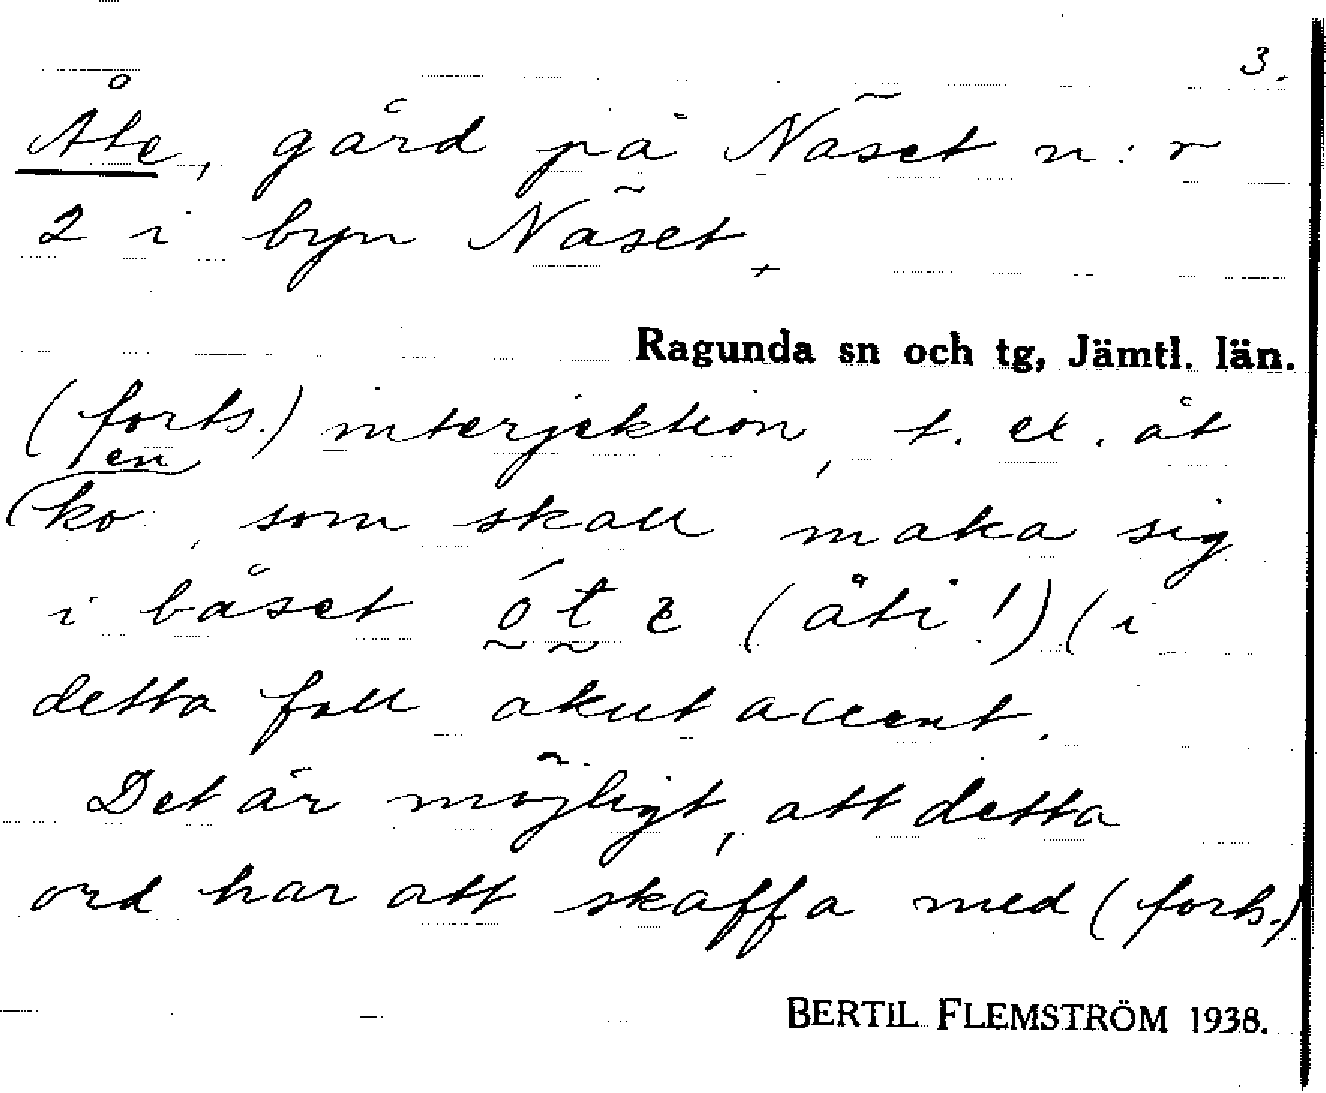 3.
Åte, gård på Näset n:r
2 i byn Näset.
Ragunda sn och tg, Jämtl. län.
(forts.) interjektion, t. ex. åt
en
ko, som skall maka sig
i båset (åti!) (i
detta fall akut accent.
Det är möjligt, att detta
ord har att skaffa med (forts.)
BERTIL FLEMSTRÖM 1938.